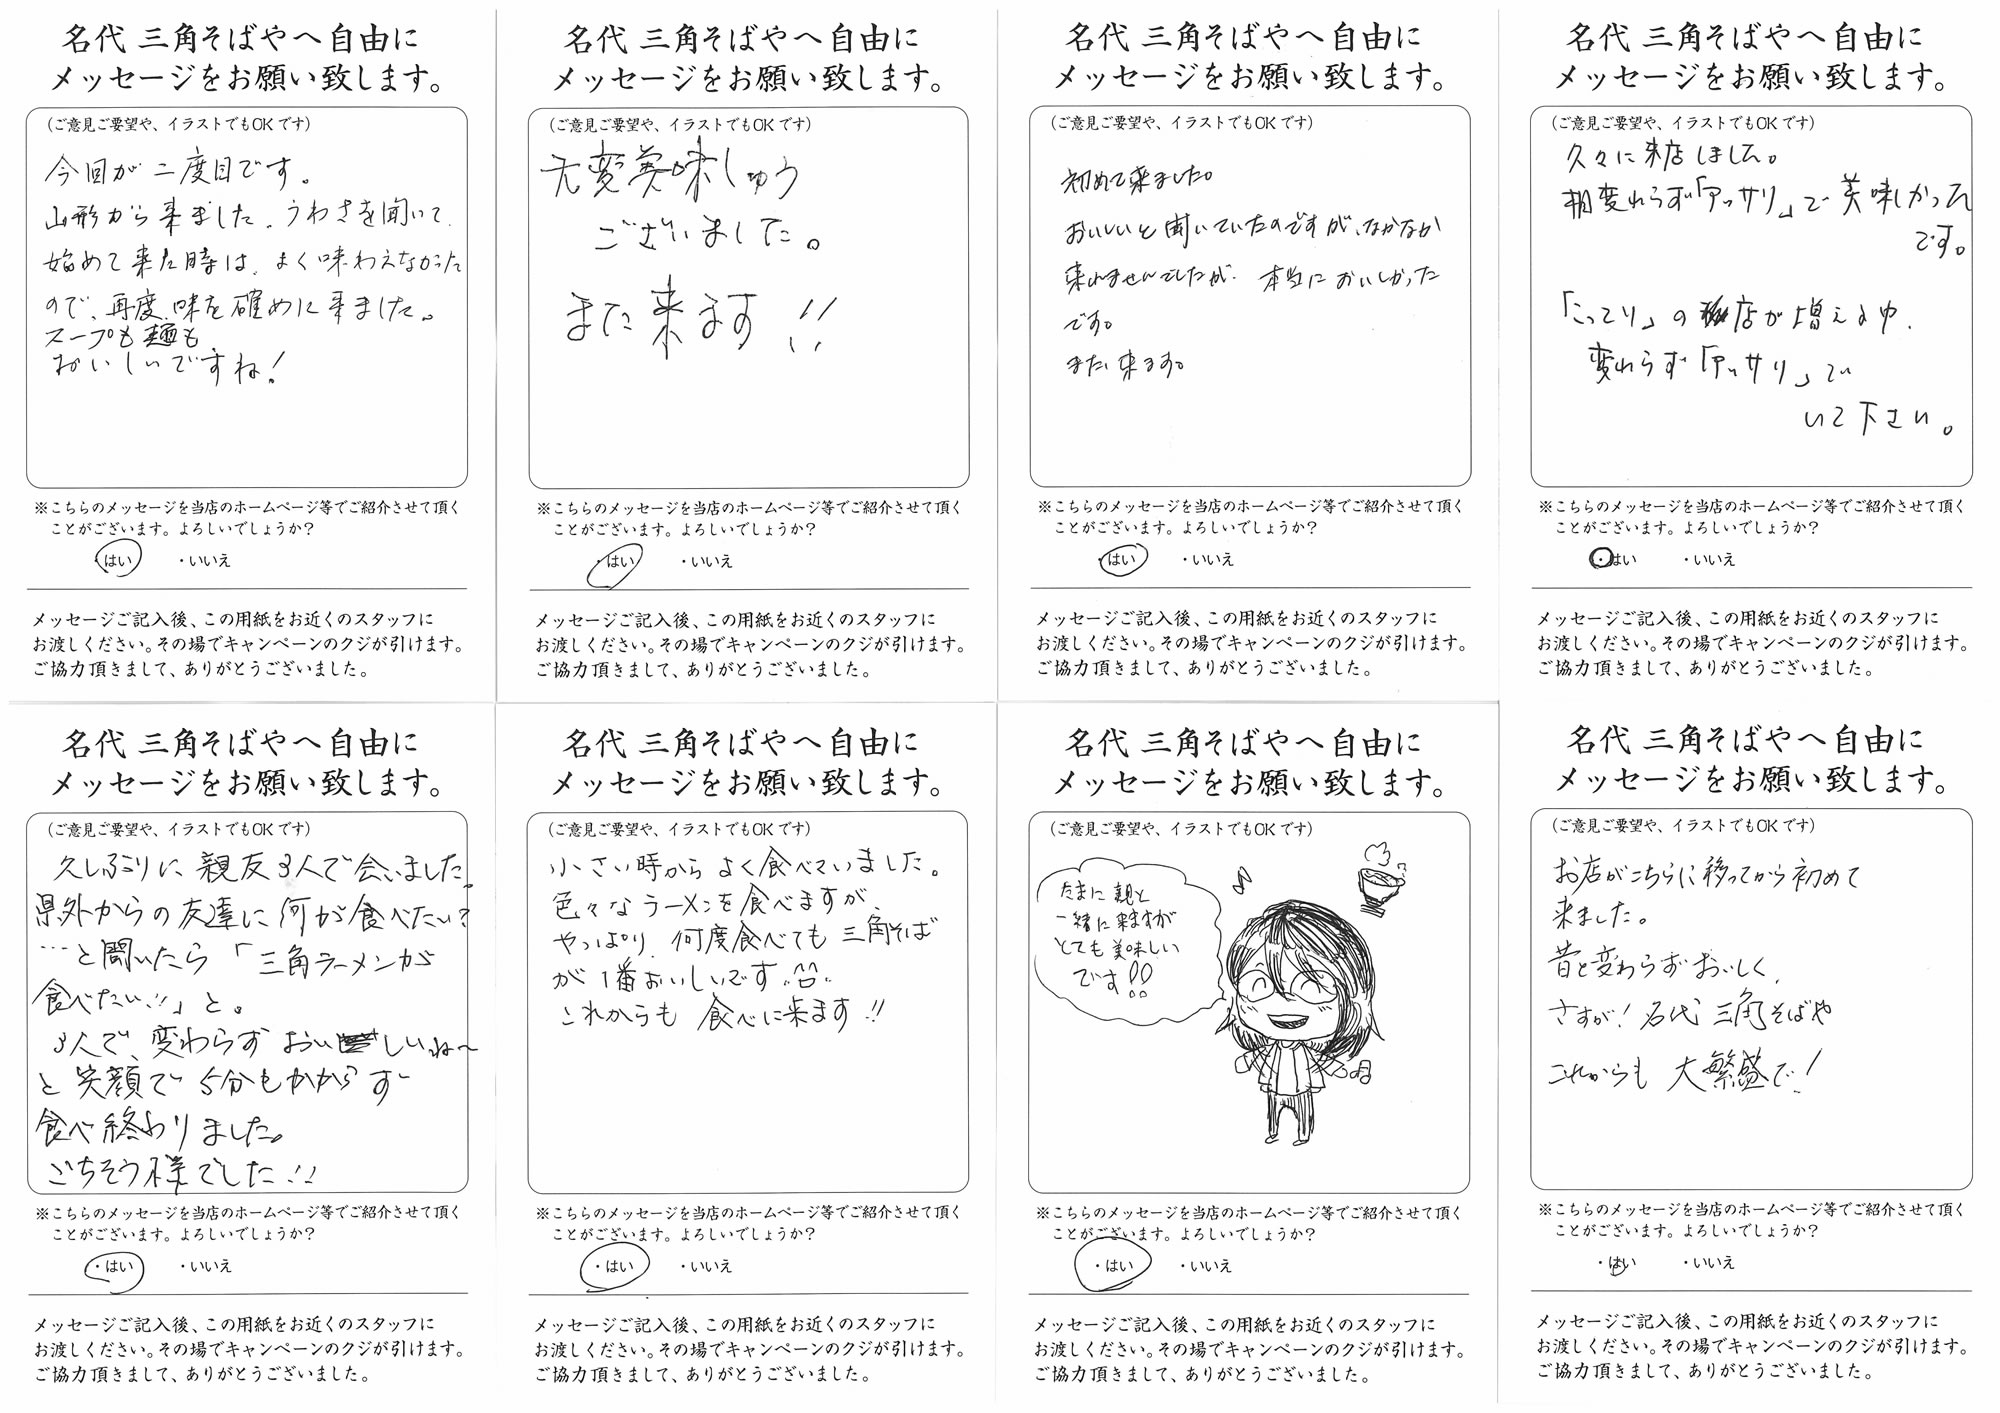 名代 三角そばやへ自由に
メッセージをお願い致します。
(ご意見ご要望や、イラストでもOKです)
今回が二度目です。
山形から来ました。うわさを聞いて、
始めて来た時は、よく味わえなかった
ので、再度、味を確めに来ました。
スープも麺も
おいしいですね!
※こちらのメッセージを当店のホームページ等でご紹介させて頂く
ことがございます。よろしいでしょうか?
・はい ・いいえ
メッセージご記入後、この用紙をお近くのスタッフに
お渡しください。その場でキャンペーンのクジが引けます。
ご協力頂きまして、ありがとうございました。
名代 三角そばやへ自由に
メッセージをお願い致します。
(ご意見ご要望や、イラストでもOKです)
大変美味しゅう
ございました。
また来ます!!
※こちらのメッセージを当店のホームページ等でご紹介させて頂く
ことがございます。よろしいでしょうか?
・はい ・いいえ
メッセージご記入後、この用紙をお近くのスタッフに
お渡しください。その場でキャンペーンのクジが引けます。
ご協力頂きまして、ありがとうございました。
名代 三角そばやへ自由に
メッセージをお願い致します。
(ご意見ご要望や、イラストでもOKです)
初めて来ました。
おいしいと聞いていたのですが、なかなか
来れませんでしたが、本当においしかった
です。
また、来ます。
※こちらのメッセージを当店のホームページ等でご紹介させて頂く
ことがございます。よろしいでしょうか?
・はい ・いいえ
メッセージご記入後、この用紙をお近くのスタッフに
お渡しください。その場でキャンペーンのクジが引けます。
ご協力頂きまして、ありがとうございました。
名代 三角そばやへ自由に
メッセージをお願い致します。
(ご意見ご要望や、イラストでもOKです)
久々に来店しました。
相変わらず「アッサリ」で美味しかった
です。
「こってり」の店が増える中、
変わらず「アッサリ」で
いて下さい。
※こちらのメッセージを当店のホームページ等でご紹介させて頂く
ことがございます。よろしいでしょうか?
・はい ・いいえ
メッセージご記入後、この用紙をお近くのスタッフに
お渡しください。その場でキャンペーンのクジが引けます。
ご協力頂きまして、ありがとうございました。
名代 三角そばやへ自由に
メッセージをお願い致します。
(ご意見ご要望や、イラストでもOKです)
久しぶりに親友3人で会いました。
県外からの友達に何が食べたい?
…と聞いたら「三角ラーメンが
食べたい!!」と。
3人で、変わらずおいしいね〜
と笑顔で5分もかからず
食べ終わりました。
ごちそう様でした!!
※こちらのメッセージを当店のホームページ等でご紹介させて頂く
ことがございます。よろしいでしょうか?
・はい ・いいえ
メッセージご記入後、この用紙をお近くのスタッフに
お渡しください。その場でキャンペーンのクジが引けます。
ご協力頂きまして、ありがとうございました。
名代 三角そばやへ自由に
メッセージをお願い致します。
(ご意見ご要望や、イラストでもOKです)
小さい時からよく食べていました。
色々なラーメンを食べますが、
やっぱり、何度食べても三角そば
が1番おいしいです
これからも食べに来ます!!
※こちらのメッセージを当店のホームページ等でご紹介させて頂く
ことがございます。よろしいでしょうか?
・はい ・いいえ
メッセージご記入後、この用紙をお近くのスタッフに
お渡しください。その場でキャンペーンのクジが引けます。
ご協力頂きまして、ありがとうございました。
名代 三角そばやへ自由に
メッセージをお願い致します。
(ご意見ご要望や、イラストでもOKです)
たまに親と
一緒に来ますが
とても美味しい
です!!
※こちらのメッセージを当店のホームページ等でご紹介させて頂く
ことがございます。よろしいでしょうか?
・はい ・いいえ
メッセージご記入後、この用紙をお近くのスタッフに
お渡しください。その場でキャンペーンのクジが引けます。
ご協力頂きまして、ありがとうございました。
名代 三角そばやへ自由に
メッセージをお願い致します。
(ご意見ご要望や、イラストでもOKです)
お店がこちらに移ってから初めて
来ました。
昔と変わらずおいしく、
さすが!名代 三角そばや
これからも大繁盛で!
※こちらのメッセージを当店のホームページ等でご紹介させて頂く
ことがございます。よろしいでしょうか?
・はい ・いいえ
メッセージご記入後、この用紙をお近くのスタッフに
お渡しください。その場でキャンペーンのクジが引けます。
ご協力頂きまして、ありがとうございました。